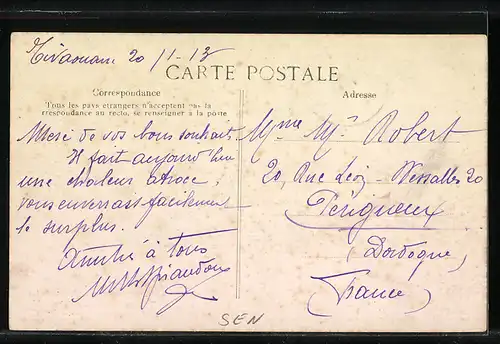 Tivaouane 20/11-13
CARTE POSTALE
Correspondance
Tous les pays étrangers n'acceptent pas la
correspondance au recto, se renseigner à la poste
Adresse
Merci de vos bons souhaits
Il fait aujourd'hui
une chaleur atroce,
vous enverrais facilement
le surplus.
Amitié à tous
Mme Mr Robert
20, Rue Léon - Versailles 20
Périgueux
(Dordogne)
(France)
SEN